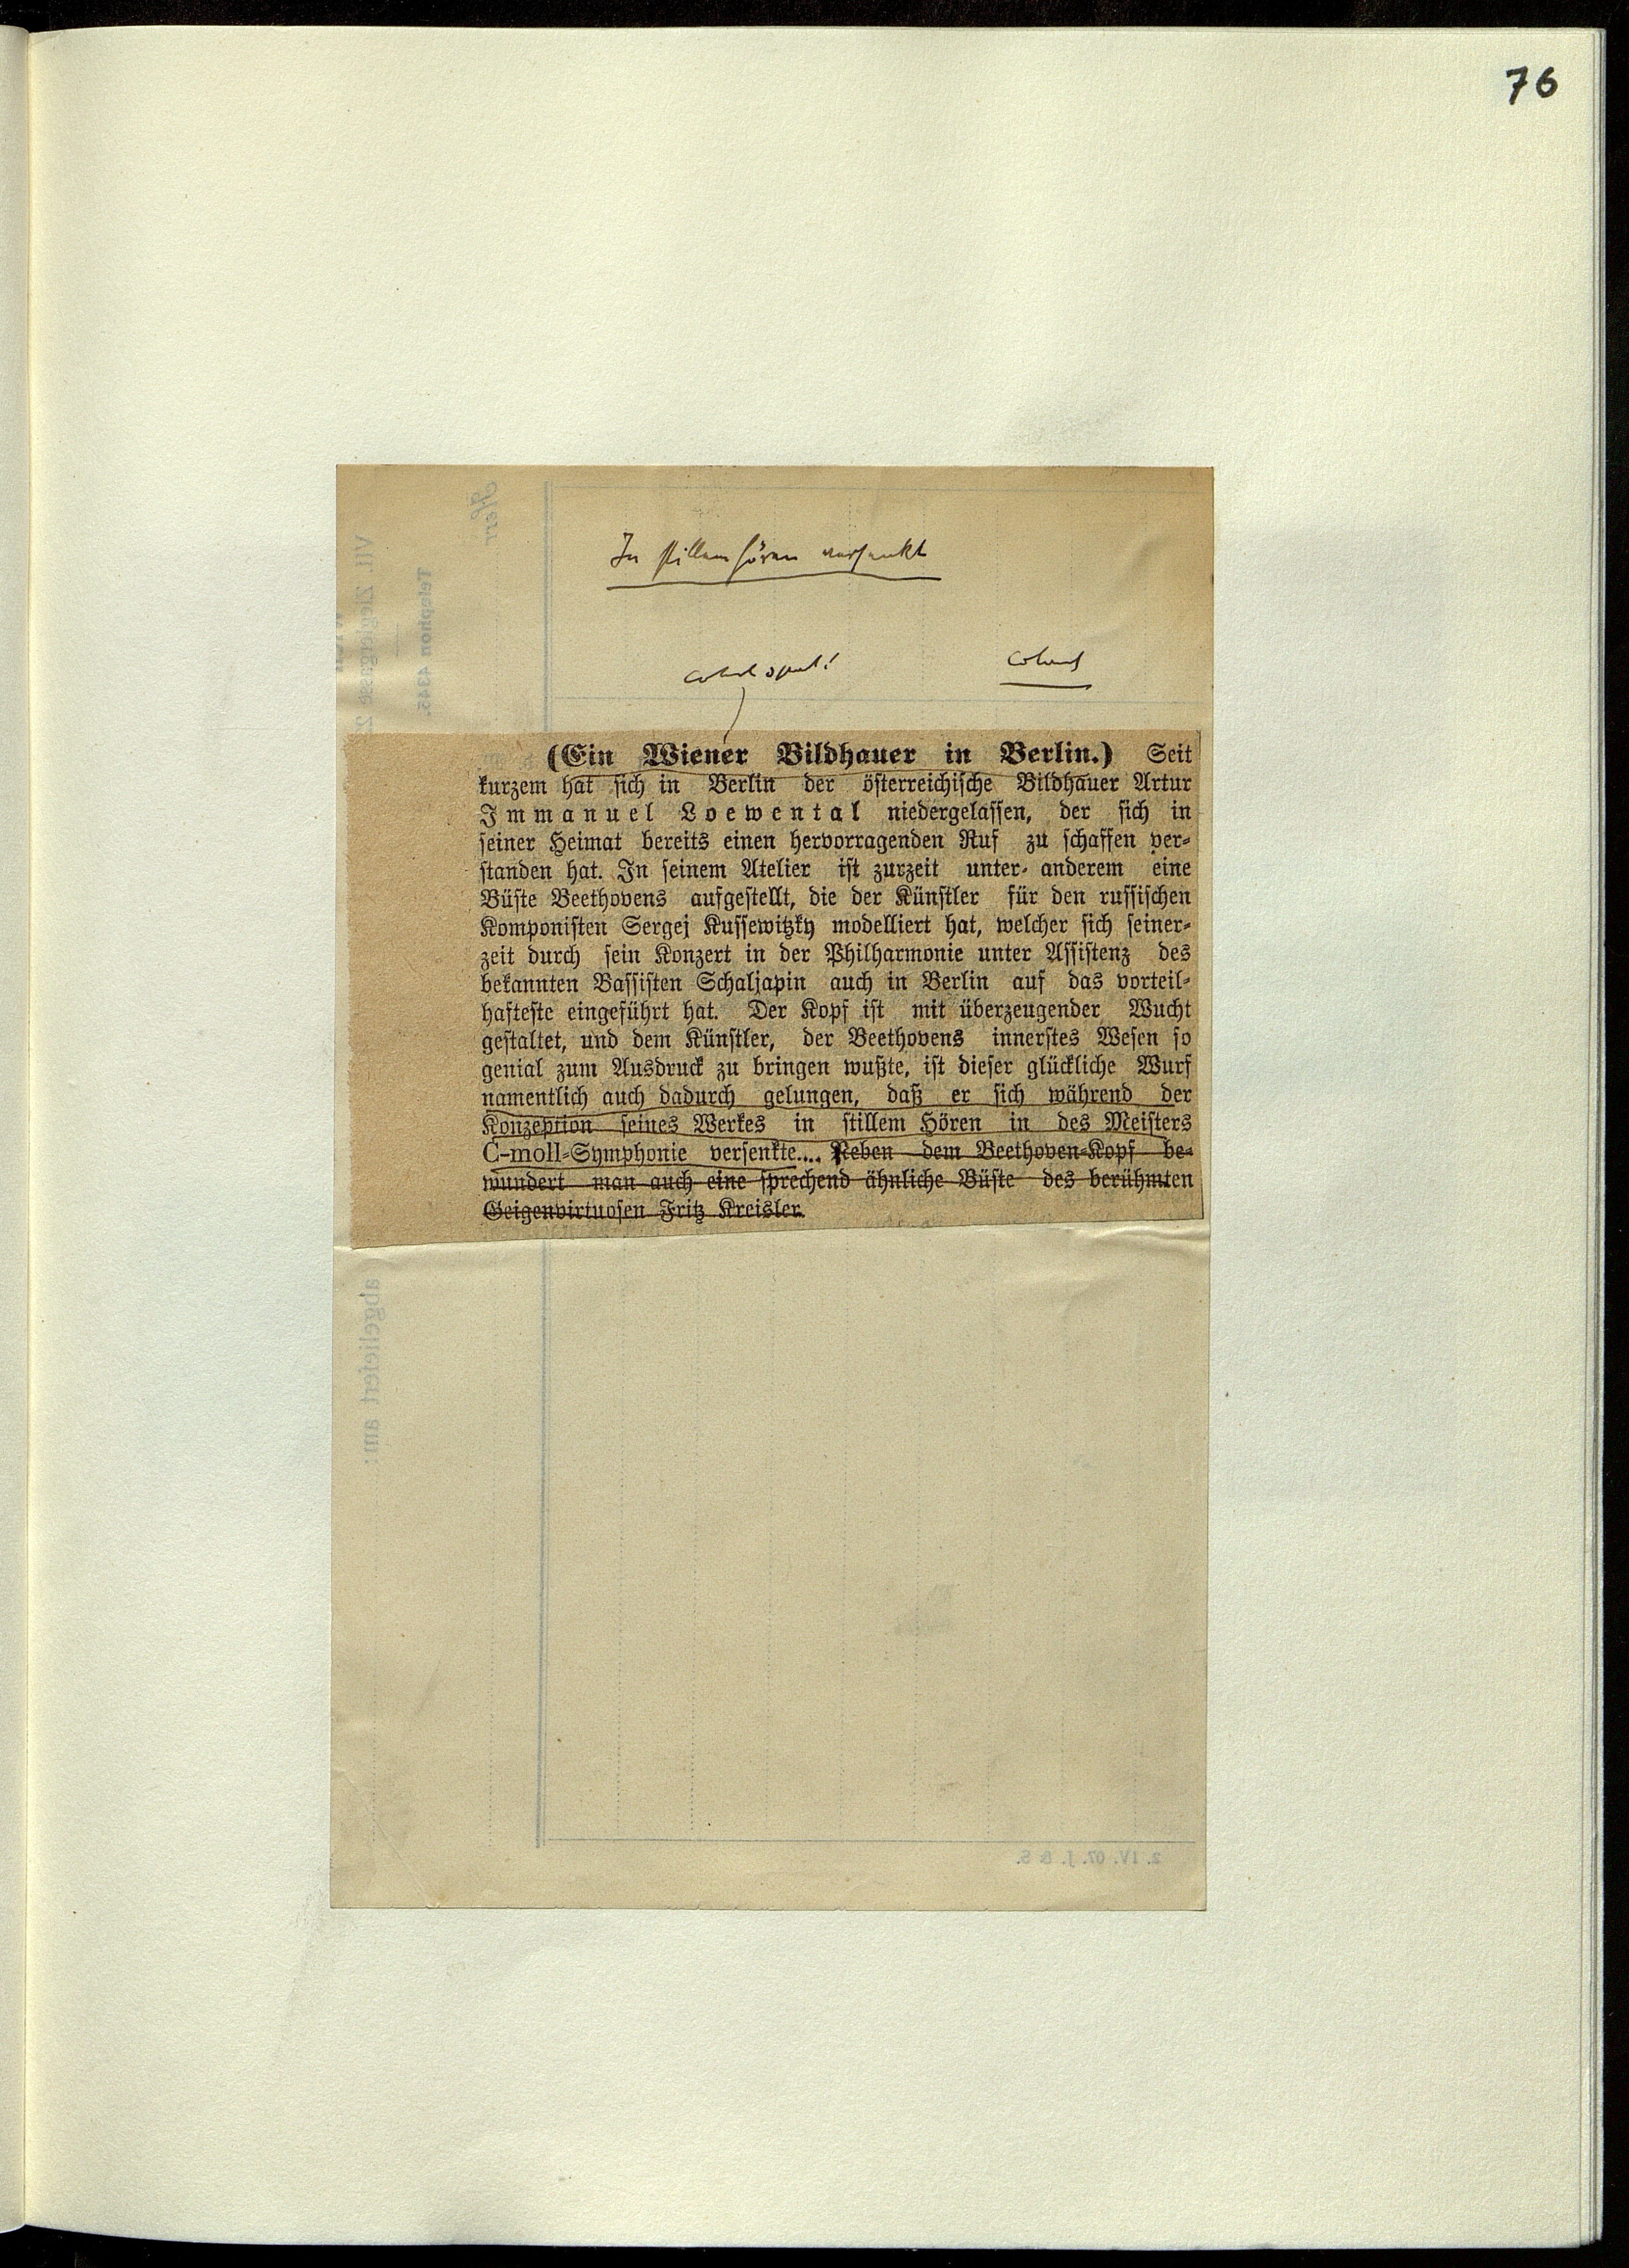 76
In stillem Hören versenkt
(Ein Wiener Bildhauer in Berlin.) Seit
kurzem hat sich in Berlin der österreichische Bildhauer Artur
Immanuel Loewental niedergelassen, der sich in
seiner Heimat bereits einen hervorragenden Ruf zu schaffen ver-
standen hat. In seinem Atelier ist zurzeit unter anderem eine
Büste Beethovens aufgestellt, die der Künstler für den russischen
Komponisten Sergej Kussewitzky modelliert hat, welcher sich seiner-
zeit durch sein Konzert in der Philharmonie unter Assistenz des
bekannten Bassisten Schaljapin auch in Berlin auf das vorteil-
hafteste eingeführt hat. Der Kopf ist mit überzeugender Wucht
gestaltet, und dem Künstler, der Beethovens innerstes Wesen so
genial zum Ausdruck zu bringen wußte, ist dieser glückliche Wurf
namentlich auch dadurch gelungen, daß er sich während der
Konzeption seines Werkes in stillem Hören in des Meisters
C-moll-Symphonie versenkte.... Neben dem Beethoven-Kopf be-
wundert man auch eine sprechend ähnliche Büste des berühmten
Geigenvirtuosen Fritz Kreisler.
Telephon 4345.
abgeliefert am:
2. IV. 07. J. & S.